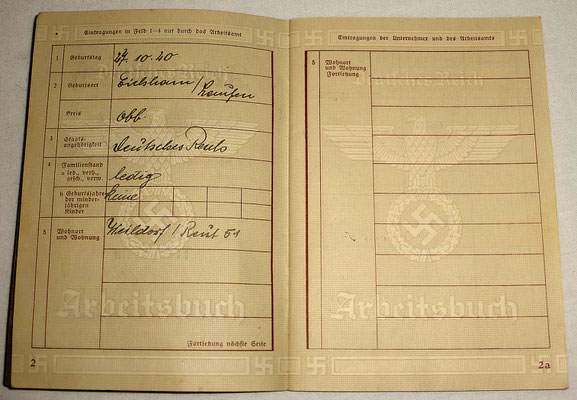 Eintragungen in Feld 1–4 nur durch das Arbeitsamt
1 Geburtstag 27.10.20
2 Geburtsort /Laufen
Kreis Obb.
3 Staats-
angehörigkeit Deutsches Reich
4 Familienstand ledig
a led., verh.,
gesch., verw.
b Geburtsjahre keine
der minder-
jährigen
Kinder
5 Wohnort Weildorf/Reut 51
und Wohnung
Arbeitsbuch
Fortsetzung nächste Seite
2
Eintragungen der Unternehmer und des Arbeitsamts
5 Wohnort
und Wohnung
Fortsetzung
Deutsches Reich
Arbeitsbuch
2a